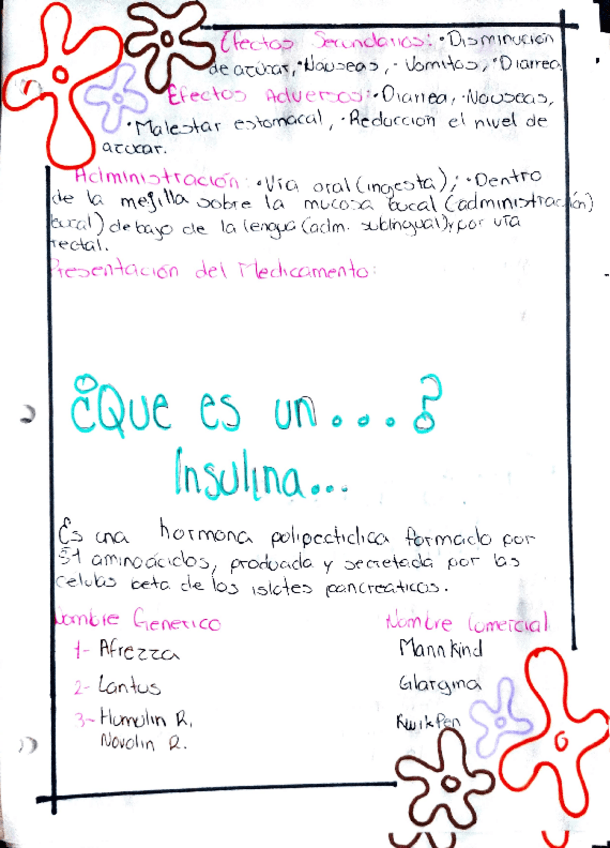 Efectos Secundarios: • Disminucion
de azúcar, • Nauseas, • Vomitos, • Diarrea
Efectos Adversos: • Diarrea, • Nauseas,
• Malestar estomacal, • Reduccion el nivel de
azucar.
Administración: • Vía oral (ingesta); • Dentro
de la mejilla sobre la mucosa bucal (administración)
bucal) debajo de la lengua (adm. sublingual) y por vía
rectal.
Presentación del Medicamento:
¿Que es un....?
Insulina...
Es una hormona polipectidica formado por
51 aminoácidos, producida y secretada por las
celulas beta de los islotes pancreaticos.
Nombre Generico
Nombre Comercial
1- Afrezza
Mannkind
2- Lantus
Glargina
3- Humulin R,
KwikPen
Novolin R.